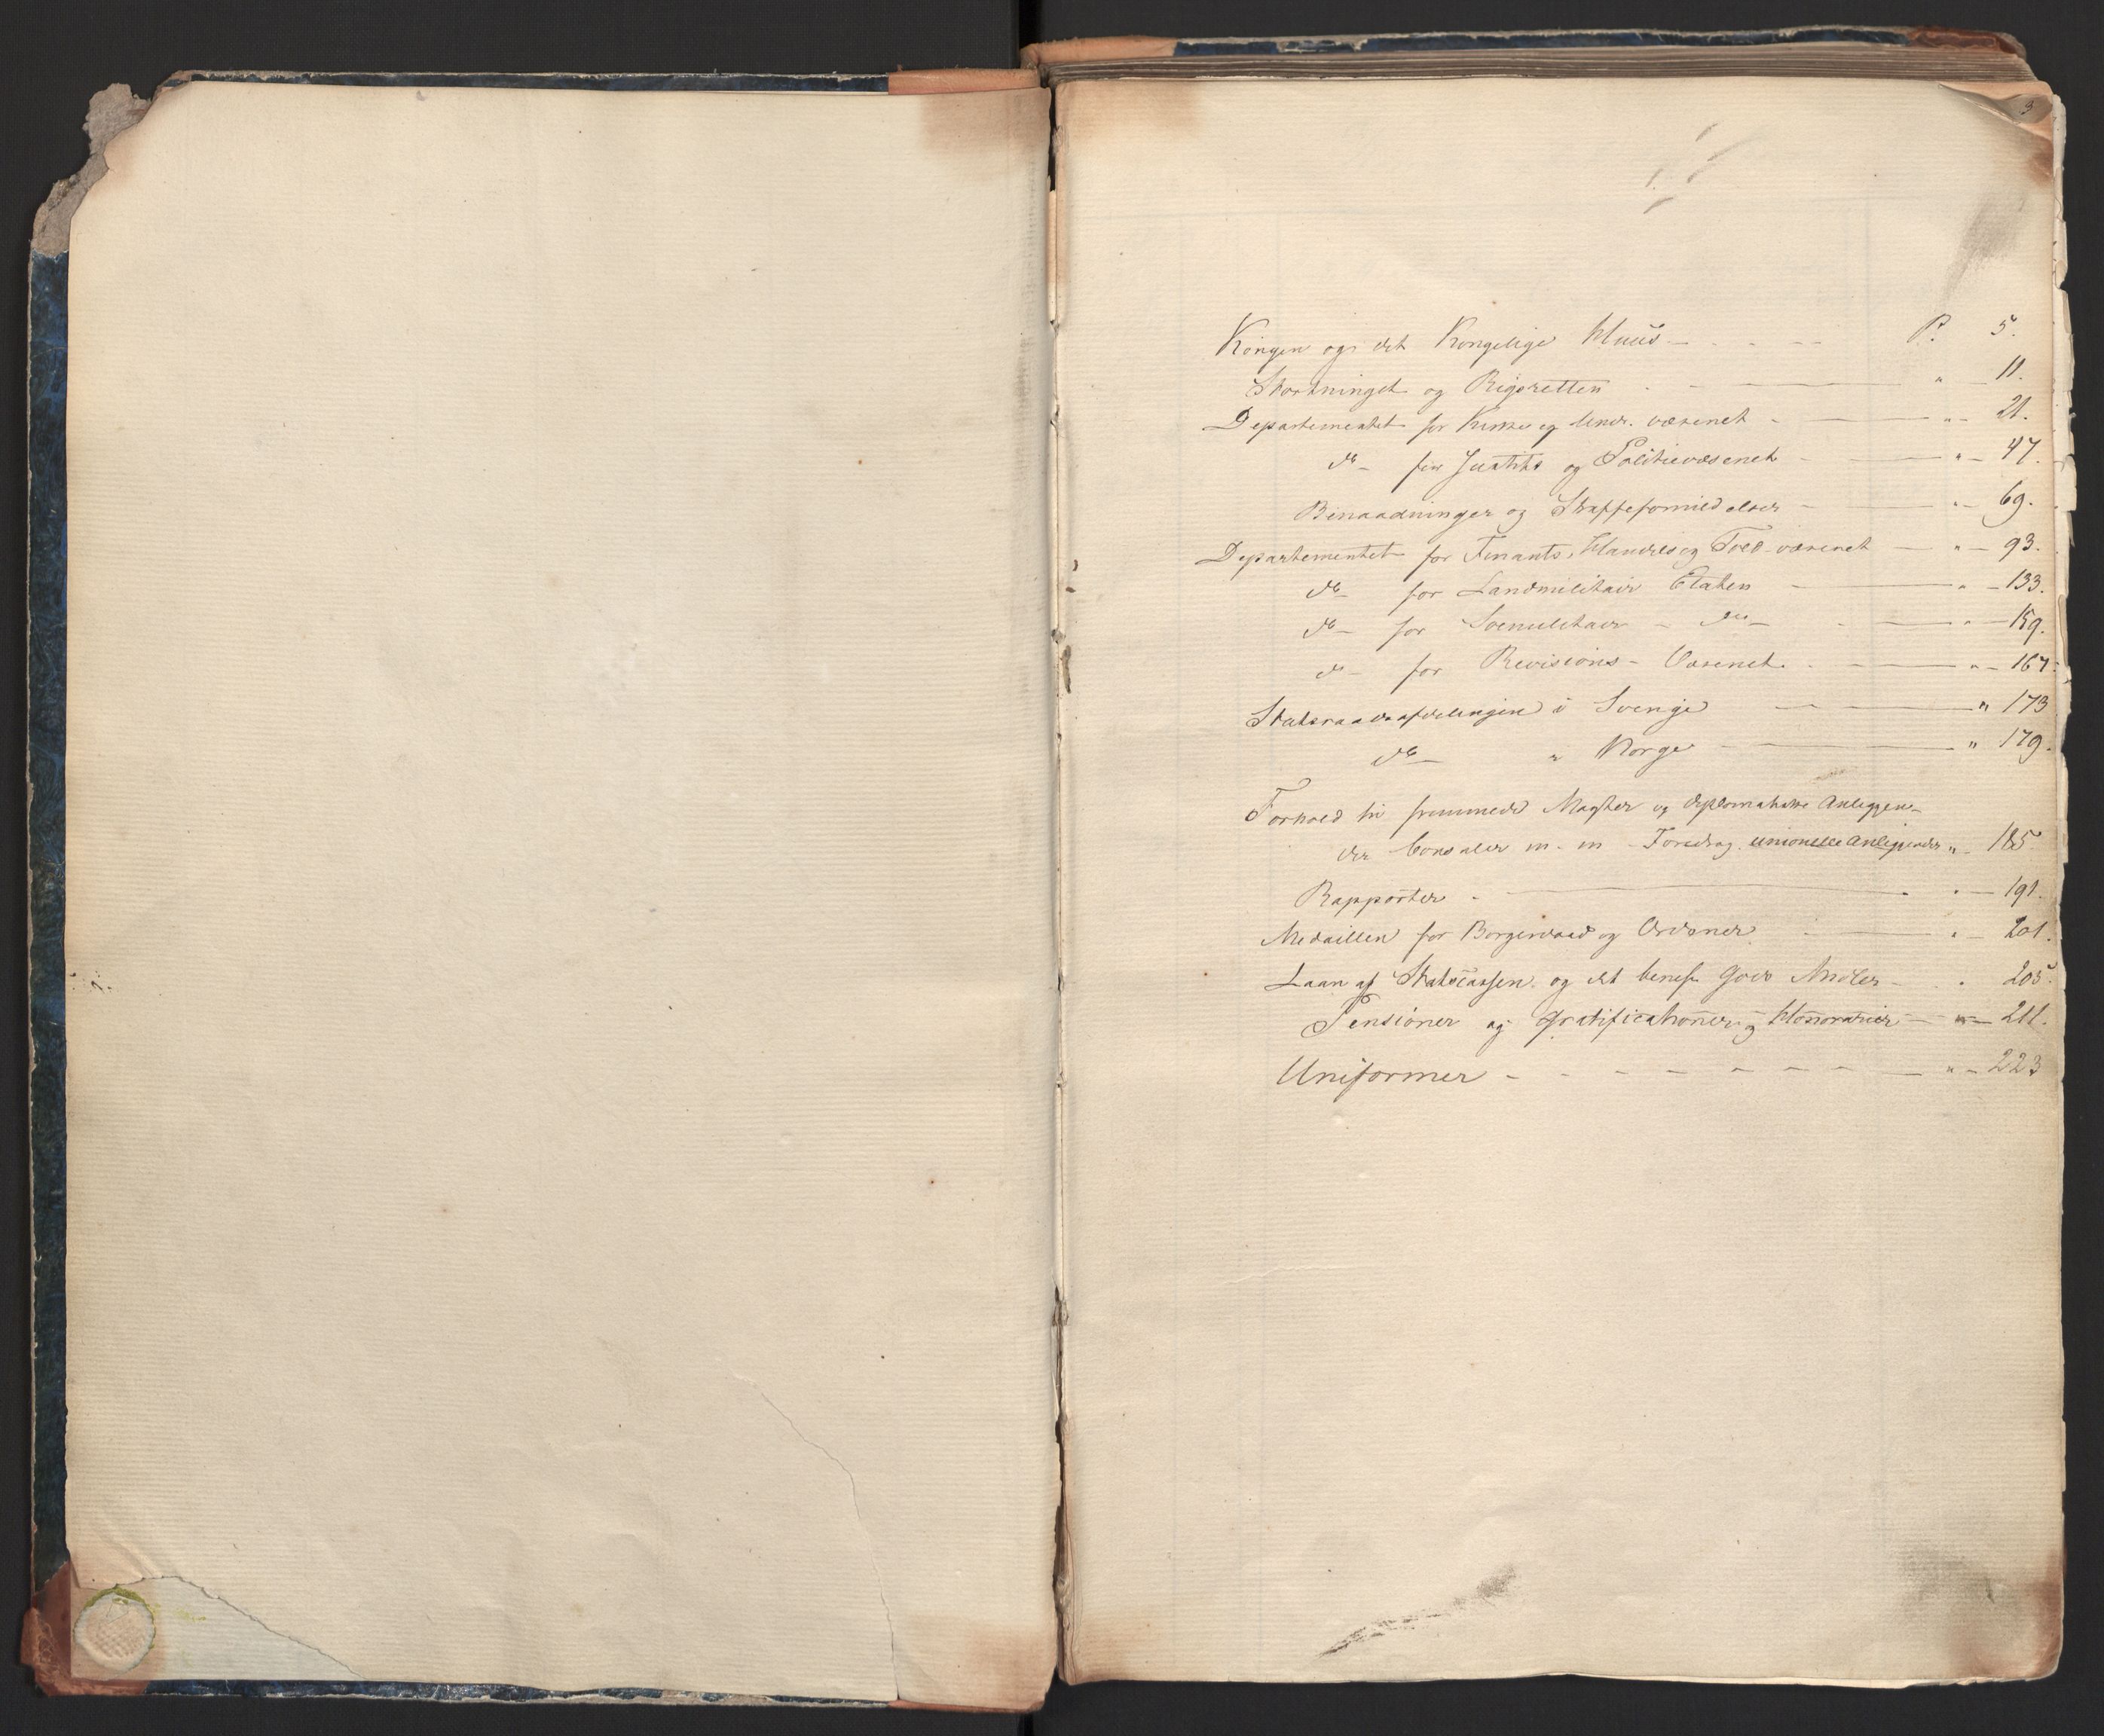 3
Kongen og det Kongelige Huus - - - - P. 5.
Storthinget og Rigsretten - — " — 11.
Departementet for Kirke og Und. væsenet - — " — 21.
do - for Justits og Politievæsenet - — " — 47.
Benaadninger og Straffeformildelser - — " — 69.
Departementet for Finants, Handels og Told-væsenet — " — 93.
do - for Landmilitair Etaten - — " — 133.
do - for Søemilitair - do - — " — 159.
do - for Revisions-Væsenet - — " — 167.
Statsraadsafdelingen i Sverige — — " 173
do - " Norge - — " 179.
Forhold til fremmede Magter og diplomatiske Anliggen-
der Consuler m. m - Foredrag. unionelle Anliggender " - 185.
Rapporter - — " — 191.
Medaillen for Borgerdaad og Ordener - — " — 201.
Laan af Statscassen og det benef. Goes Midler - - " 205.
Pensioner og Gratificationer og Honorarier — " — 211.
Uniformer - - - - - - - - — " — 223